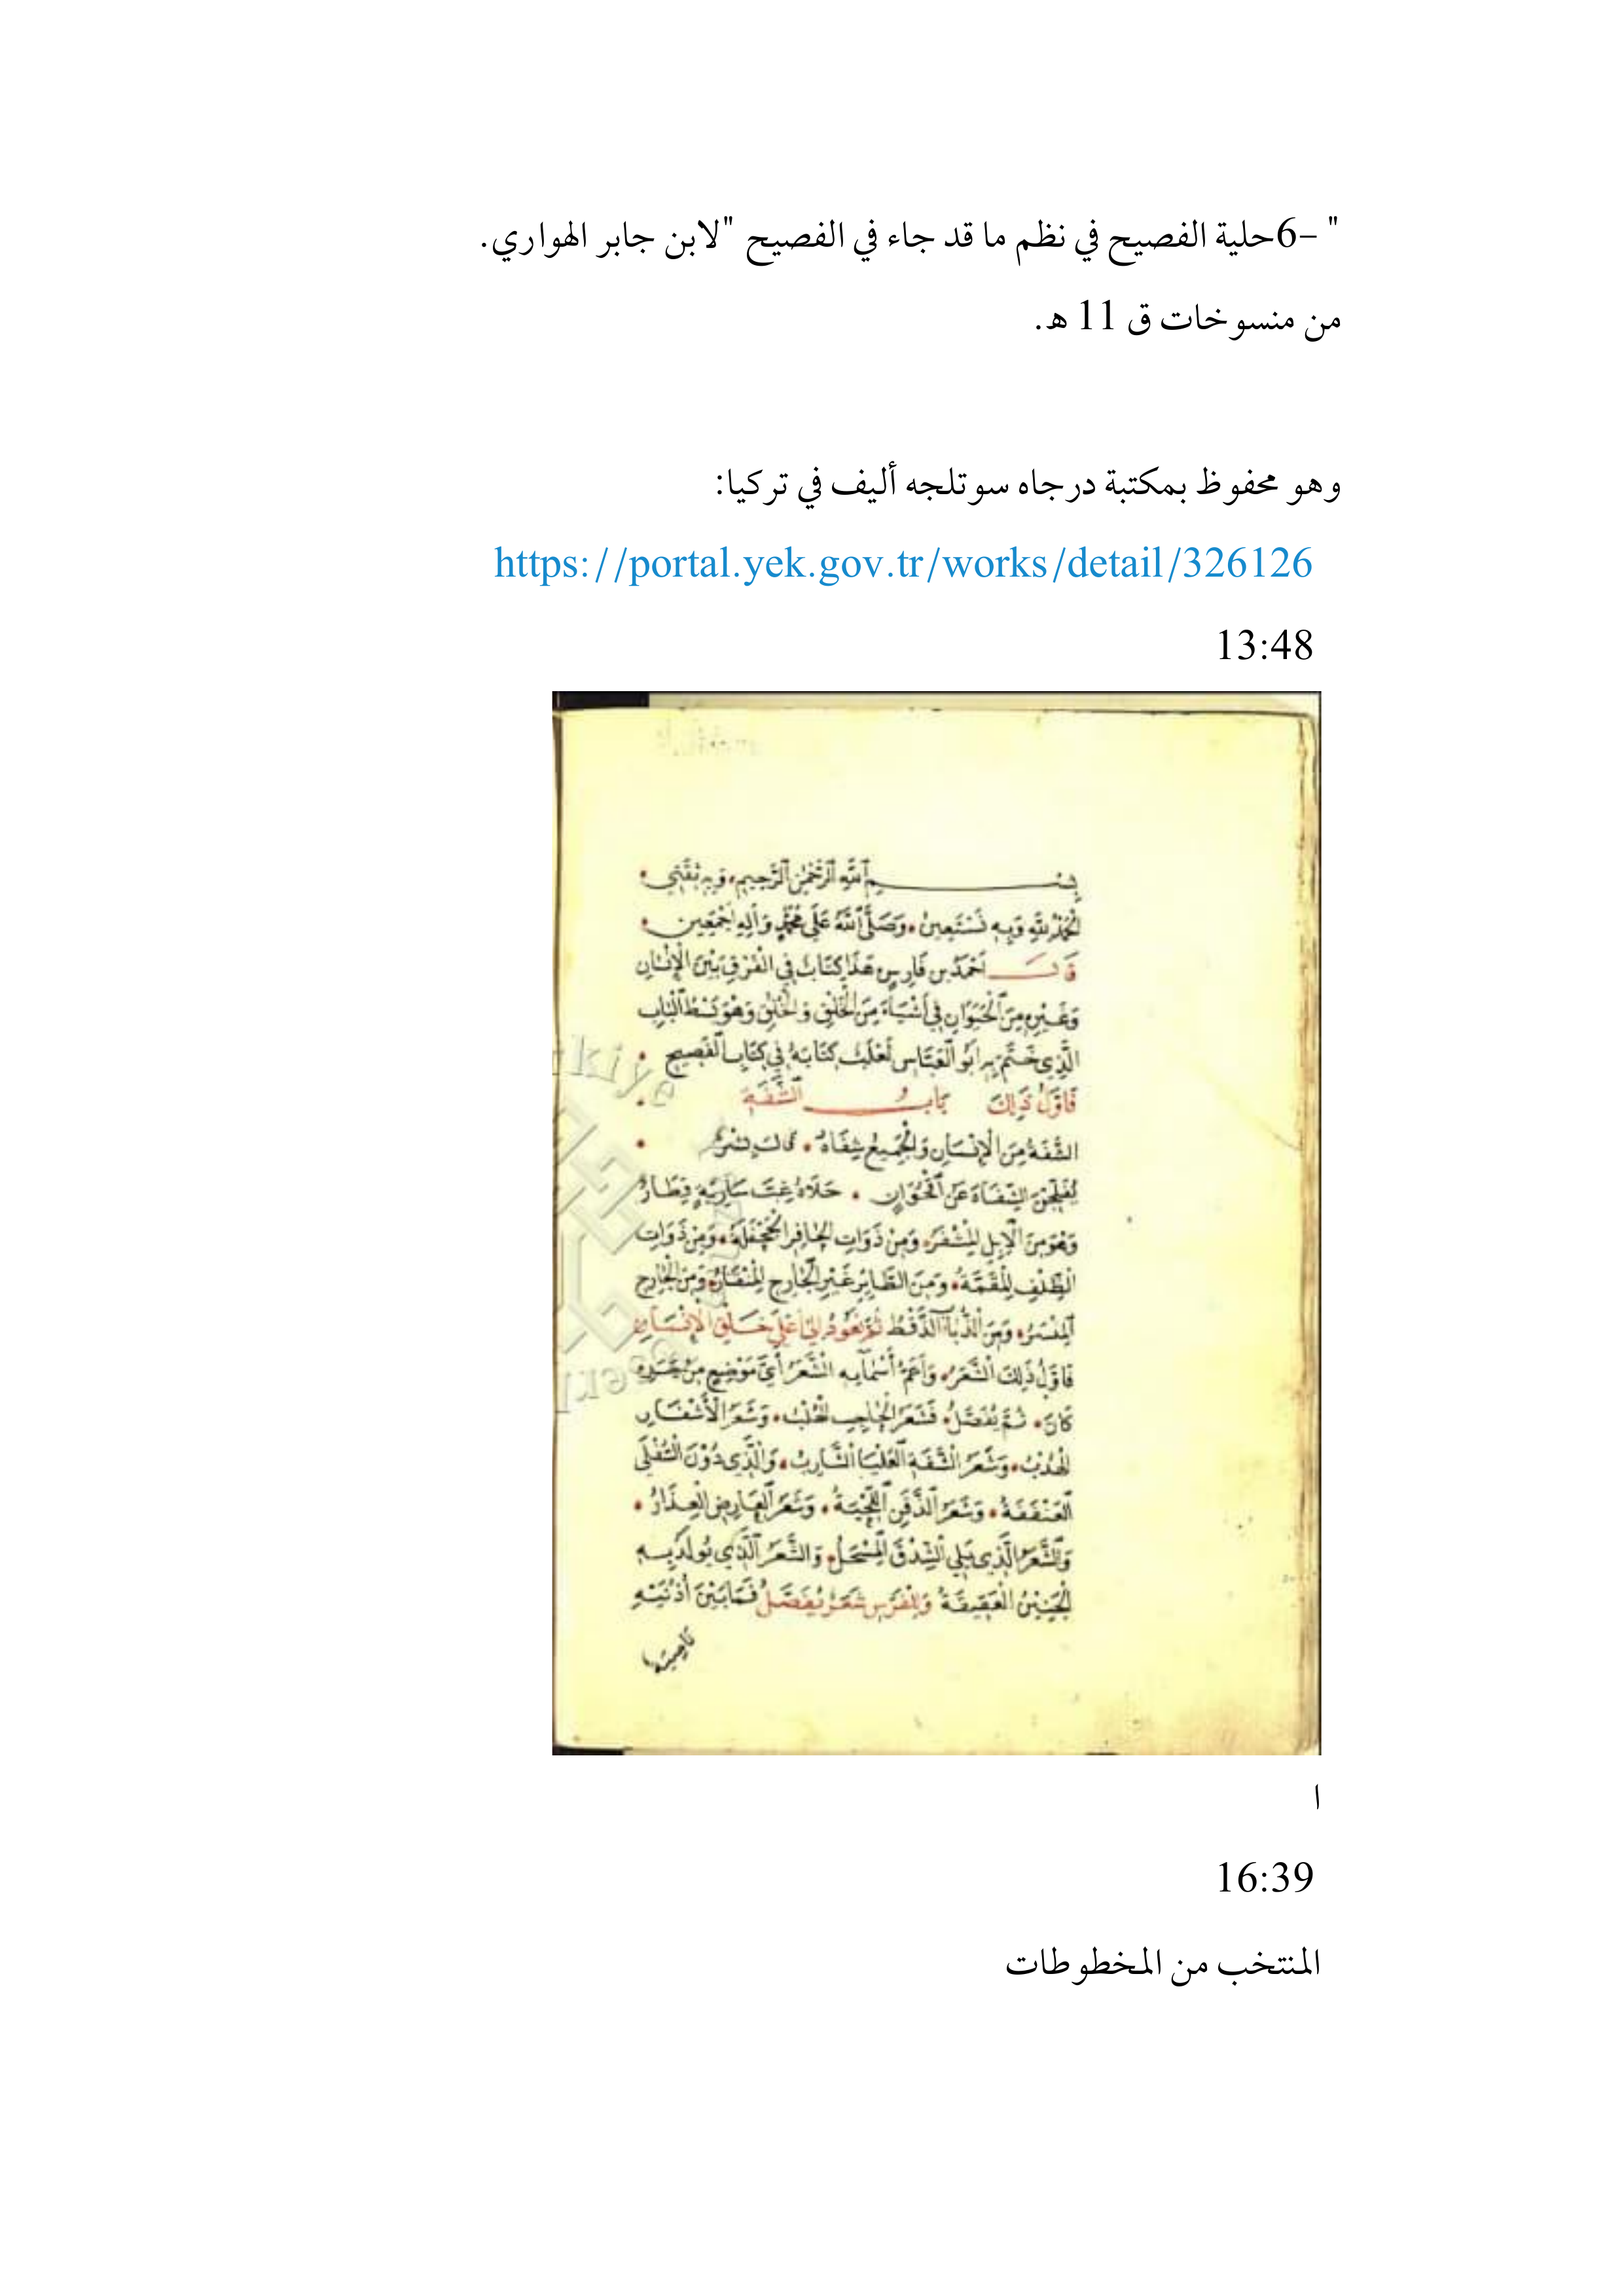 " -6حلية الفصيح في نظم ما قد جاء في الفصيح "لابن جابر الهواري.
من منسوخات ق 11 ه.
وهو محفوظ بمكتبة درجاه سوتلجه أليف في تركيا:
https://portal.yek.gov.tr/works/detail/326126
13:48
بِسْمِ ٱللَّهِ ٱلرَّحْمٰنِ ٱلرَّحِيمِ وَبِهِ ثِقَتِي
الْحَمْدُ لِلَّهِ وَبِهِ نَسْتَعِينُ وَصَلَّى ٱللَّهُ عَلَى مُحَمَّدٍ وَآلِهِ أَجْمَعِينَ
قَالَ أَحْمَدُ بن فَارِسٍ هَذَا كِتَابٌ فِي الْفَرْقِ بَيْنَ الْإِنْسَانِ
وَغَيْرِهِ مِنَ ٱلْحَيَوَانِ فِي أَشْيَاءَ مِنَ الْخَلْقِ وَالْخُلُقِ وَهُوَ بَسْطُ ٱلْبَابِ
الَّذِي خَتَمَ بِهِ أَبُو ٱلْعَبَّاسِ ثَعْلَبٌ كِتَابَهُ فِي كِتَابِ ٱلْفَصِيحِ
فَأَوَّلُ ذَلِكَ بَابُ ٱلشَّفَةِ
الشَّفَةُ مِنَ الْإِنْسَانِ وَالْجَمِيعُ شِفَاهٌ قَالَ بِشْرٌ
يُفَلِّجْنَ الشِّفَاهَ عَنْ ٱقْحُوَانٍ جَلَاهُ غِبَّ سَارِيَةٍ قِطَارُ
وَهُوَ مِنَ ٱلْإِبِلِ الْمِشْفَرُ وَمِنْ ذَوَاتِ الْحَافِرِ الْجَحْفَلَةُ وَمِنْ ذَوَاتِ
الظِّلْفِ الْمِقَمَّةُ وَمِنَ الطَّائِرِ غَيْرِ الْجَارِحِ الْمِنْقَارُ وَمِنَ الْجَارِحِ
الْمِنْسَرُ وَمِنَ الذُّبَابِ ثُمَّ نَعُودُ إِلَى أَعْلَى خَلْقِ الْإِنْسَانِ
فَأَوَّلُ ذَلِكَ الشَّعَرُ وَأَعَمُّ أَسْمَائِهِ الشَّعَرُ أَيَّ مَوْضِعٍ مِنْ جَسَدِهِ
كَانَ ثُمَّ يُفَصَّلُ فَشَعَرُ الْحَاجِبِ وَشَعَرُ الْأَشْفَارِ
الْهُدْبُ وَشَعَرُ الشَّفَةِ الْعُلْيَا الشَّارِبُ وَالَّذِي دُوْنَ السُّفْلَى
الْعَنْفَقَةُ وَشَعَرُ الذَّقَنِ اللِّحْيَةُ وَشَعَرُ الْعَارِضِ الْعِذَارُ
وَالشَّعَرُ الَّذِي يَلِي الشِّدْقَ الْمِسْحَلُ وَالشَّعَرُ الَّذِي يُولَدُ بِهِ
الْجَنِيْنُ الْعَقِيقَةُ وَلِلْفَرَسِ شَعَرٌ يُفَصَّلُ فَمَا بَيْنَ أُذُنَيْهِ
ا
16:39
المنتخب من المخطوطات